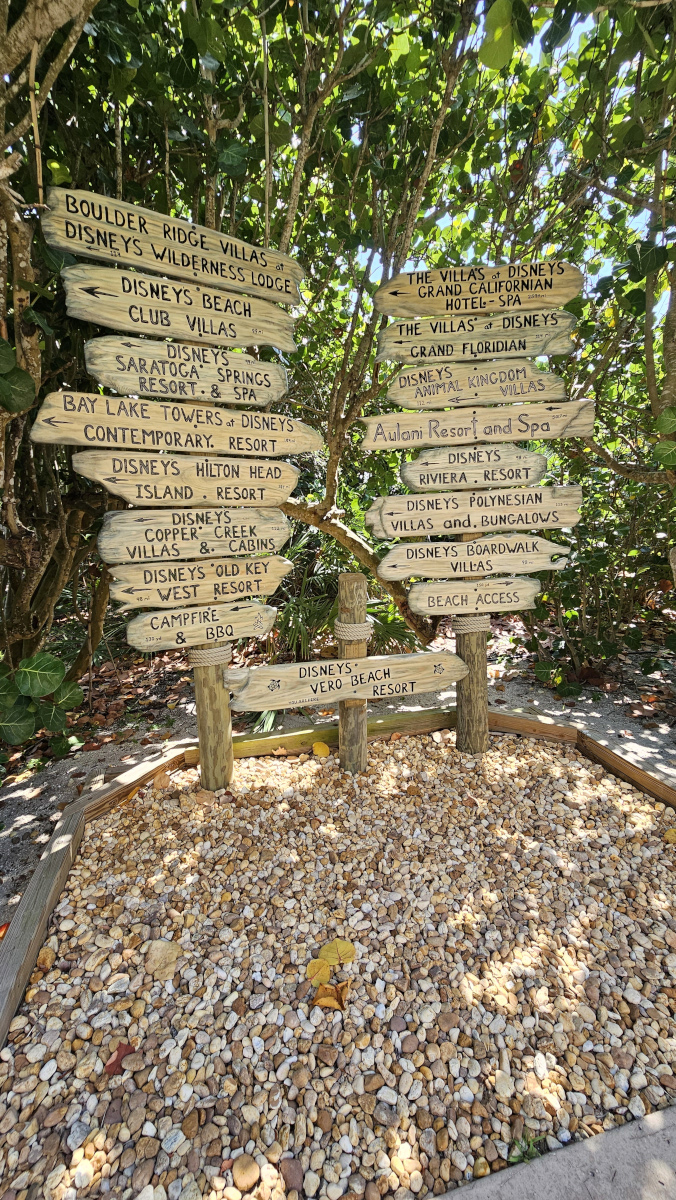 BOULDER RIDGE VILLAS at
DISNEYS WILDERNESS LODGE
DISNEYS BEACH
CLUB VILLAS
DISNEYS
SARATOGA SPRINGS
RESORT & SPA
BAY LAKE TOWERS at DISNEYS
CONTEMPORARY. RESORT
DISNEYS HILTON HEAD
ISLAND . RESORT
DISNEYS
COPPER CREEK
VILLAS & CABINS
DISNEYS OLD KEY
WEST RESORT
CAMPFIRE
& BBQ
THE VILLAS at DISNEYS
GRAND CALIFORNIAN
HOTEL-SPA
THE VILLAS at DISNEYS
GRAND FLORIDIAN
DISNEYS
ANIMAL KINGDOM
VILLAS
Aulani Resort and Spa
DISNEYS
RIVIERA . RESORT
DISNEYS POLYNESIAN
VILLAS and. BUNGALOWS
DISNEYS BOARDWALK
VILLAS
BEACH ACCESS
DISNEYS
VERO BEACH
RESORT